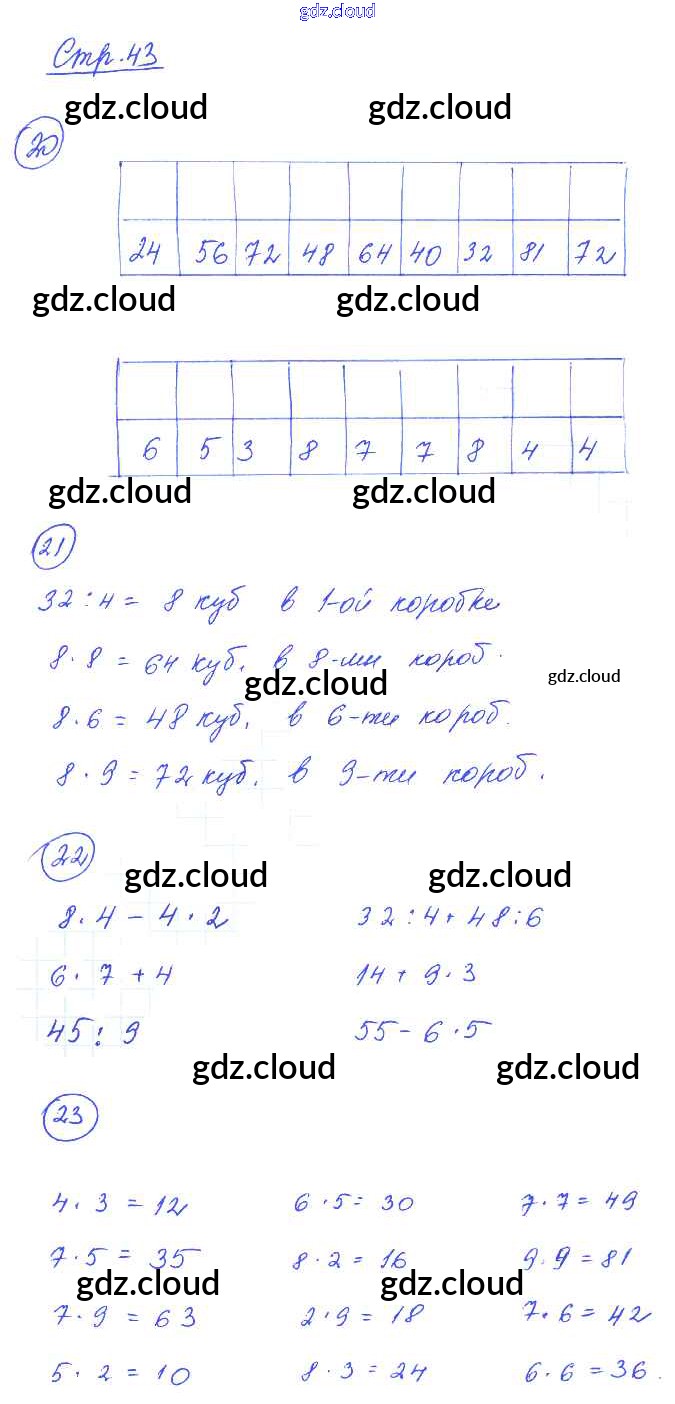 gdz.cloud
Стр. 43
gdz.cloud gdz.cloud
20
24 56 72 48 64 40 32 81 72
gdz.cloud gdz.cloud
6 5 3 8 7 7 8 4 4
gdz.cloud gdz.cloud
21
32 : 4 = 8 куб в 1-ой коробке
8 · 8 = 64 куб. в 8-ми короб.
gdz.cloud gdz.cloud
8 · 6 = 48 куб. в 6-ти короб.
8 · 9 = 72 куб. в 9-ти короб.
22
gdz.cloud gdz.cloud
8 · 4 - 4 · 2 32 : 4 + 48 : 6
6 · 7 + 4 14 + 9 · 3
45 : 9 55 - 6 · 5
gdz.cloud gdz.cloud
23
4 · 3 = 12 6 · 5 = 30 7 · 7 = 49
7 · 5 = 35 8 · 2 = 16 9 · 9 = 81
gdz.cloud gdz.cloud
7 · 9 = 63 2 · 9 = 18 7 · 6 = 42
5 · 2 = 10 8 · 3 = 24 6 · 6 = 36.